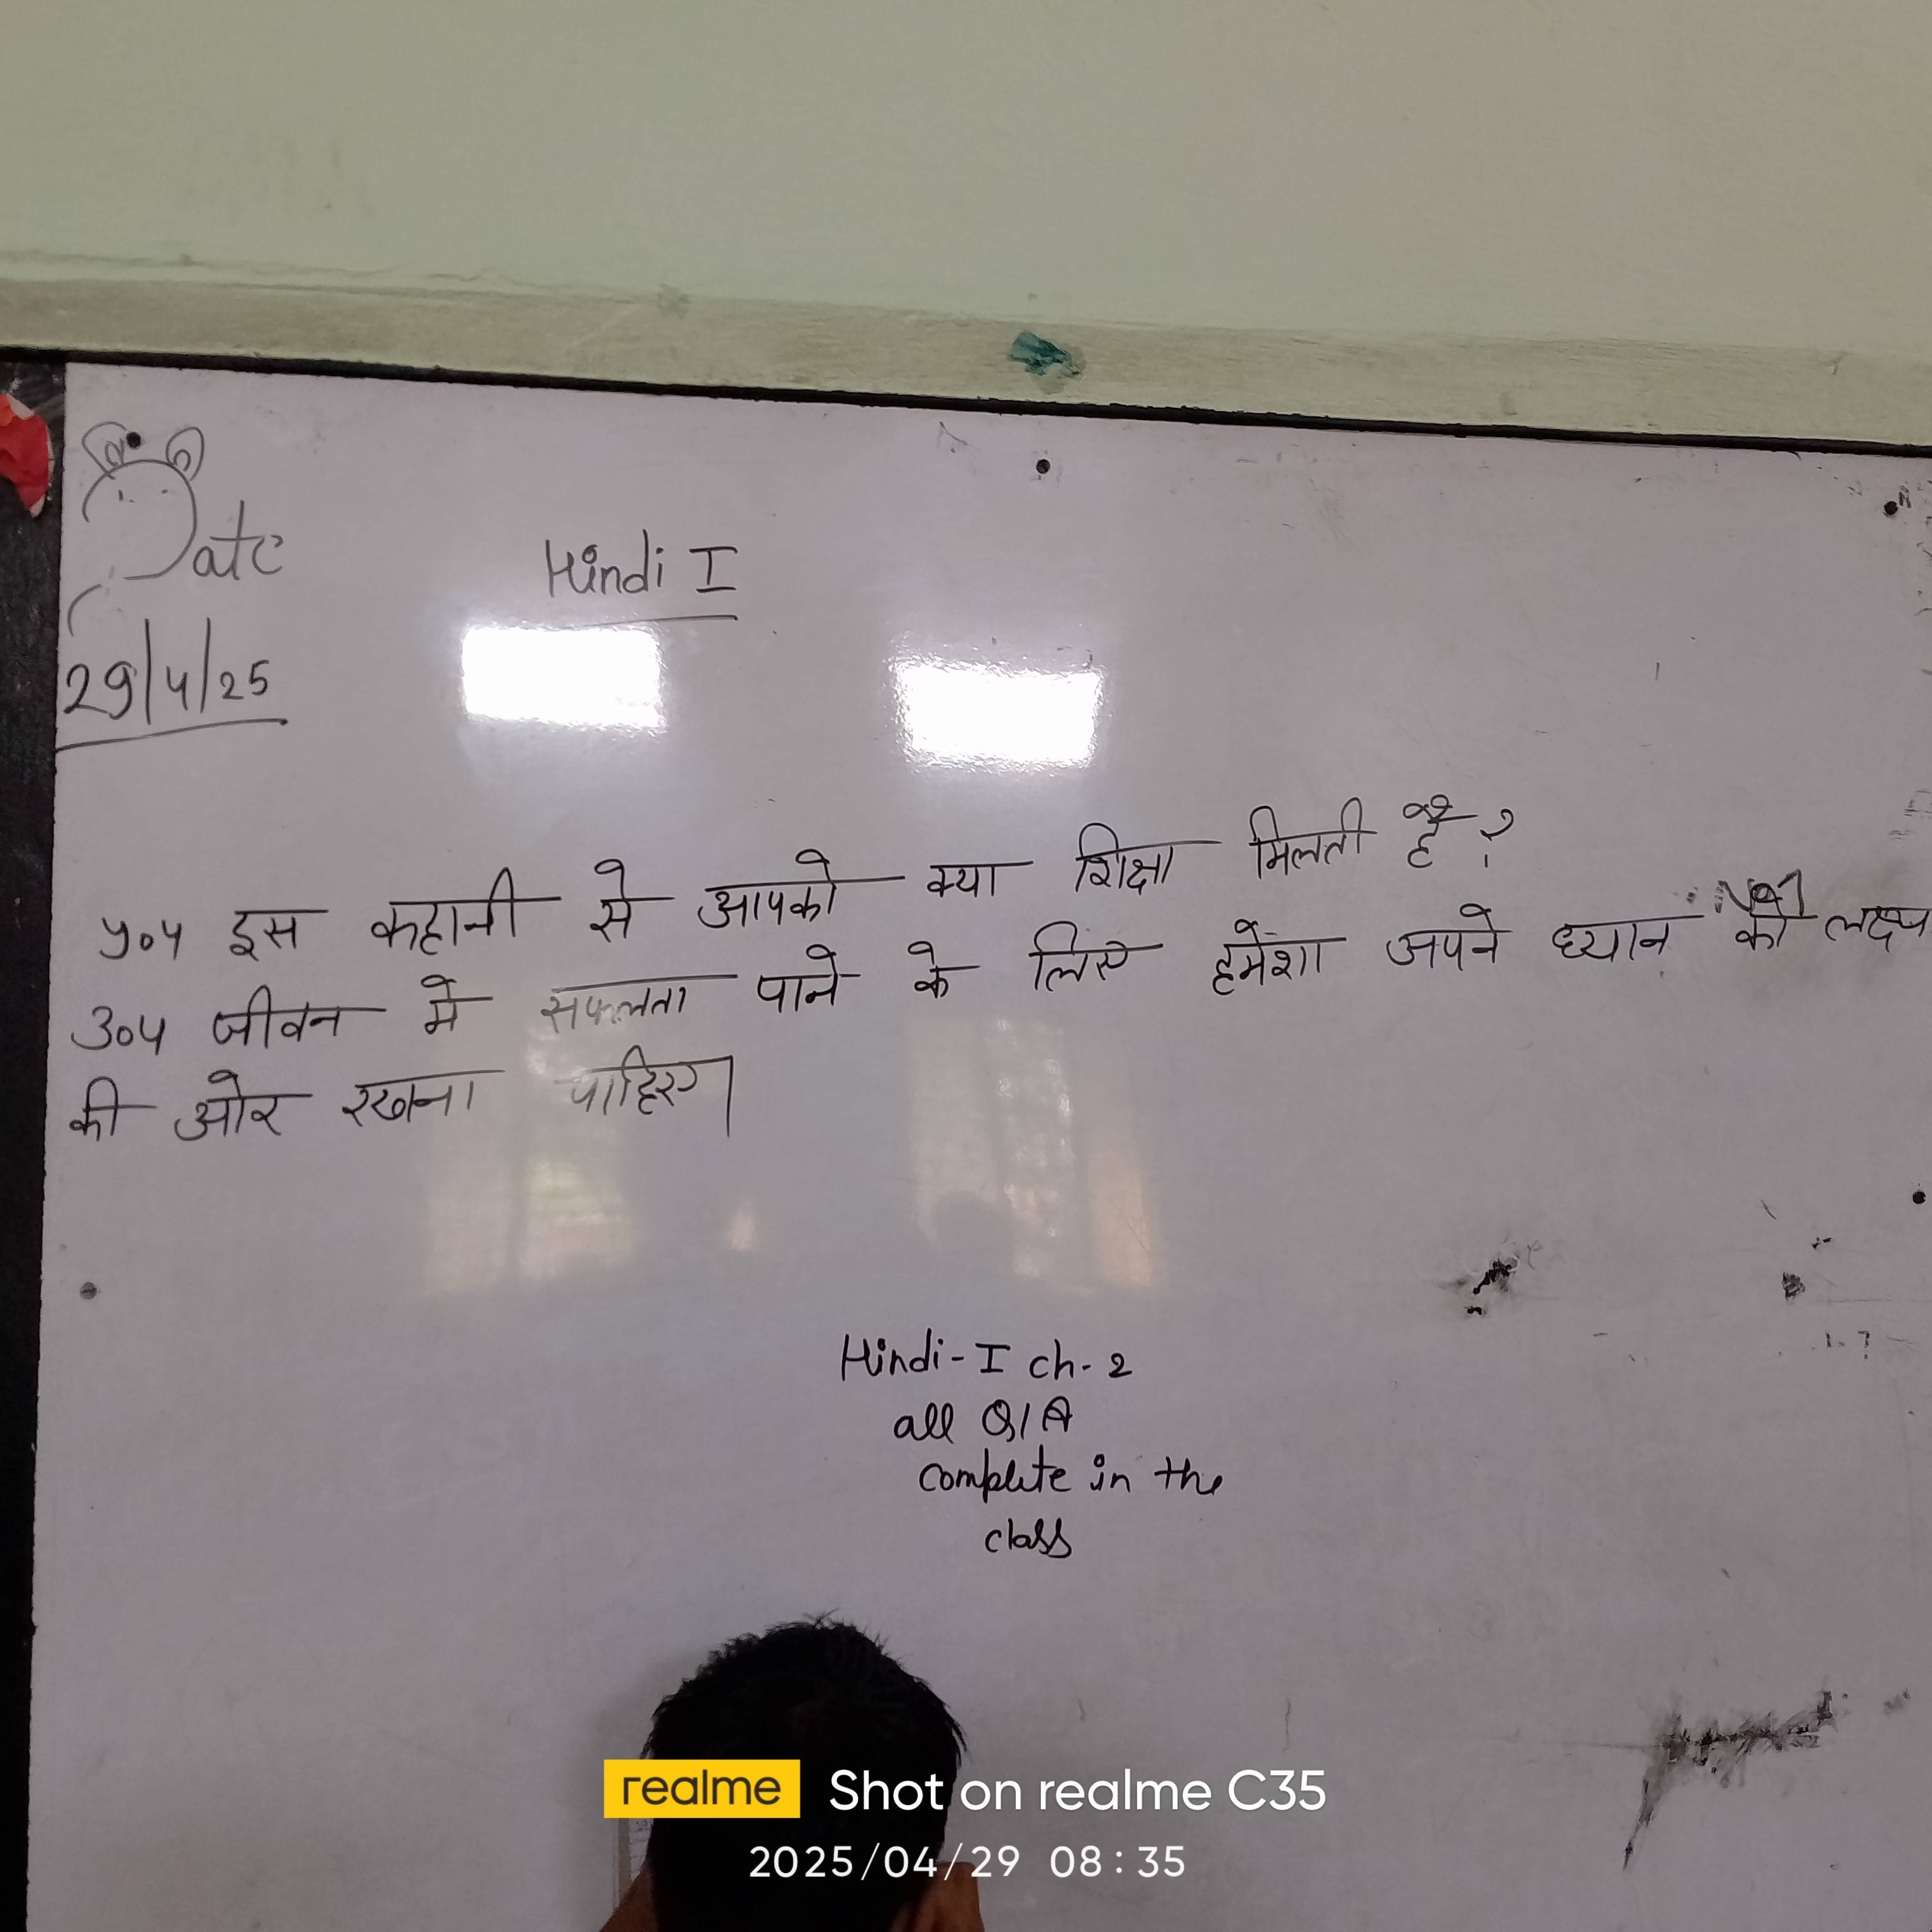 Date
Hindi I
29/4/25
प्र०4 इस कहानी से आपको क्या शिक्षा मिलती है?
उ०4 जीवन मे सफलता पाने के लिए हमेंशा अपने ध्यान को लक्ष्य
की ओर रखना चाहिए।
Hindi-I ch-2
all Q/A
complete in the
class
realme Shot on realme C35
2025/04/29 08:35